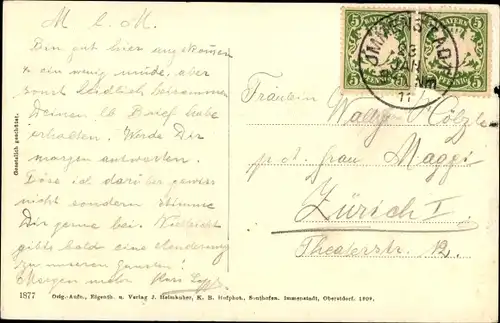 M l. M.
Bin gut hier angekommen
& ein wenig müde, aber
sonst leidlich beisammen
Deinen lb Brief habe
erhalten. Werde Dir
morgen antworten.
Böse ich darüber gewiss
nicht sondern stimme
Dir gerne bei. Vielleicht
gibts bald eine Aenderung
zu unseren Gunsten!
Morgen mehr
Gesetzlich geschützt.
BAYERN
5 5
PFENNIG
BAYERN
5 5
PFENNIG
IMMENSTADT
23
JAN
11
Fräulein
Wally Hölzle
p. a. frau Maggi
Zürich I.
Theaterstr. 12.
1877 Orig.-Aufn., Eigenth. u. Verlag J. Heimhuber, K. B. Hofphot., Sonthofen, Immenstadt, Oberstdorf. 1909.